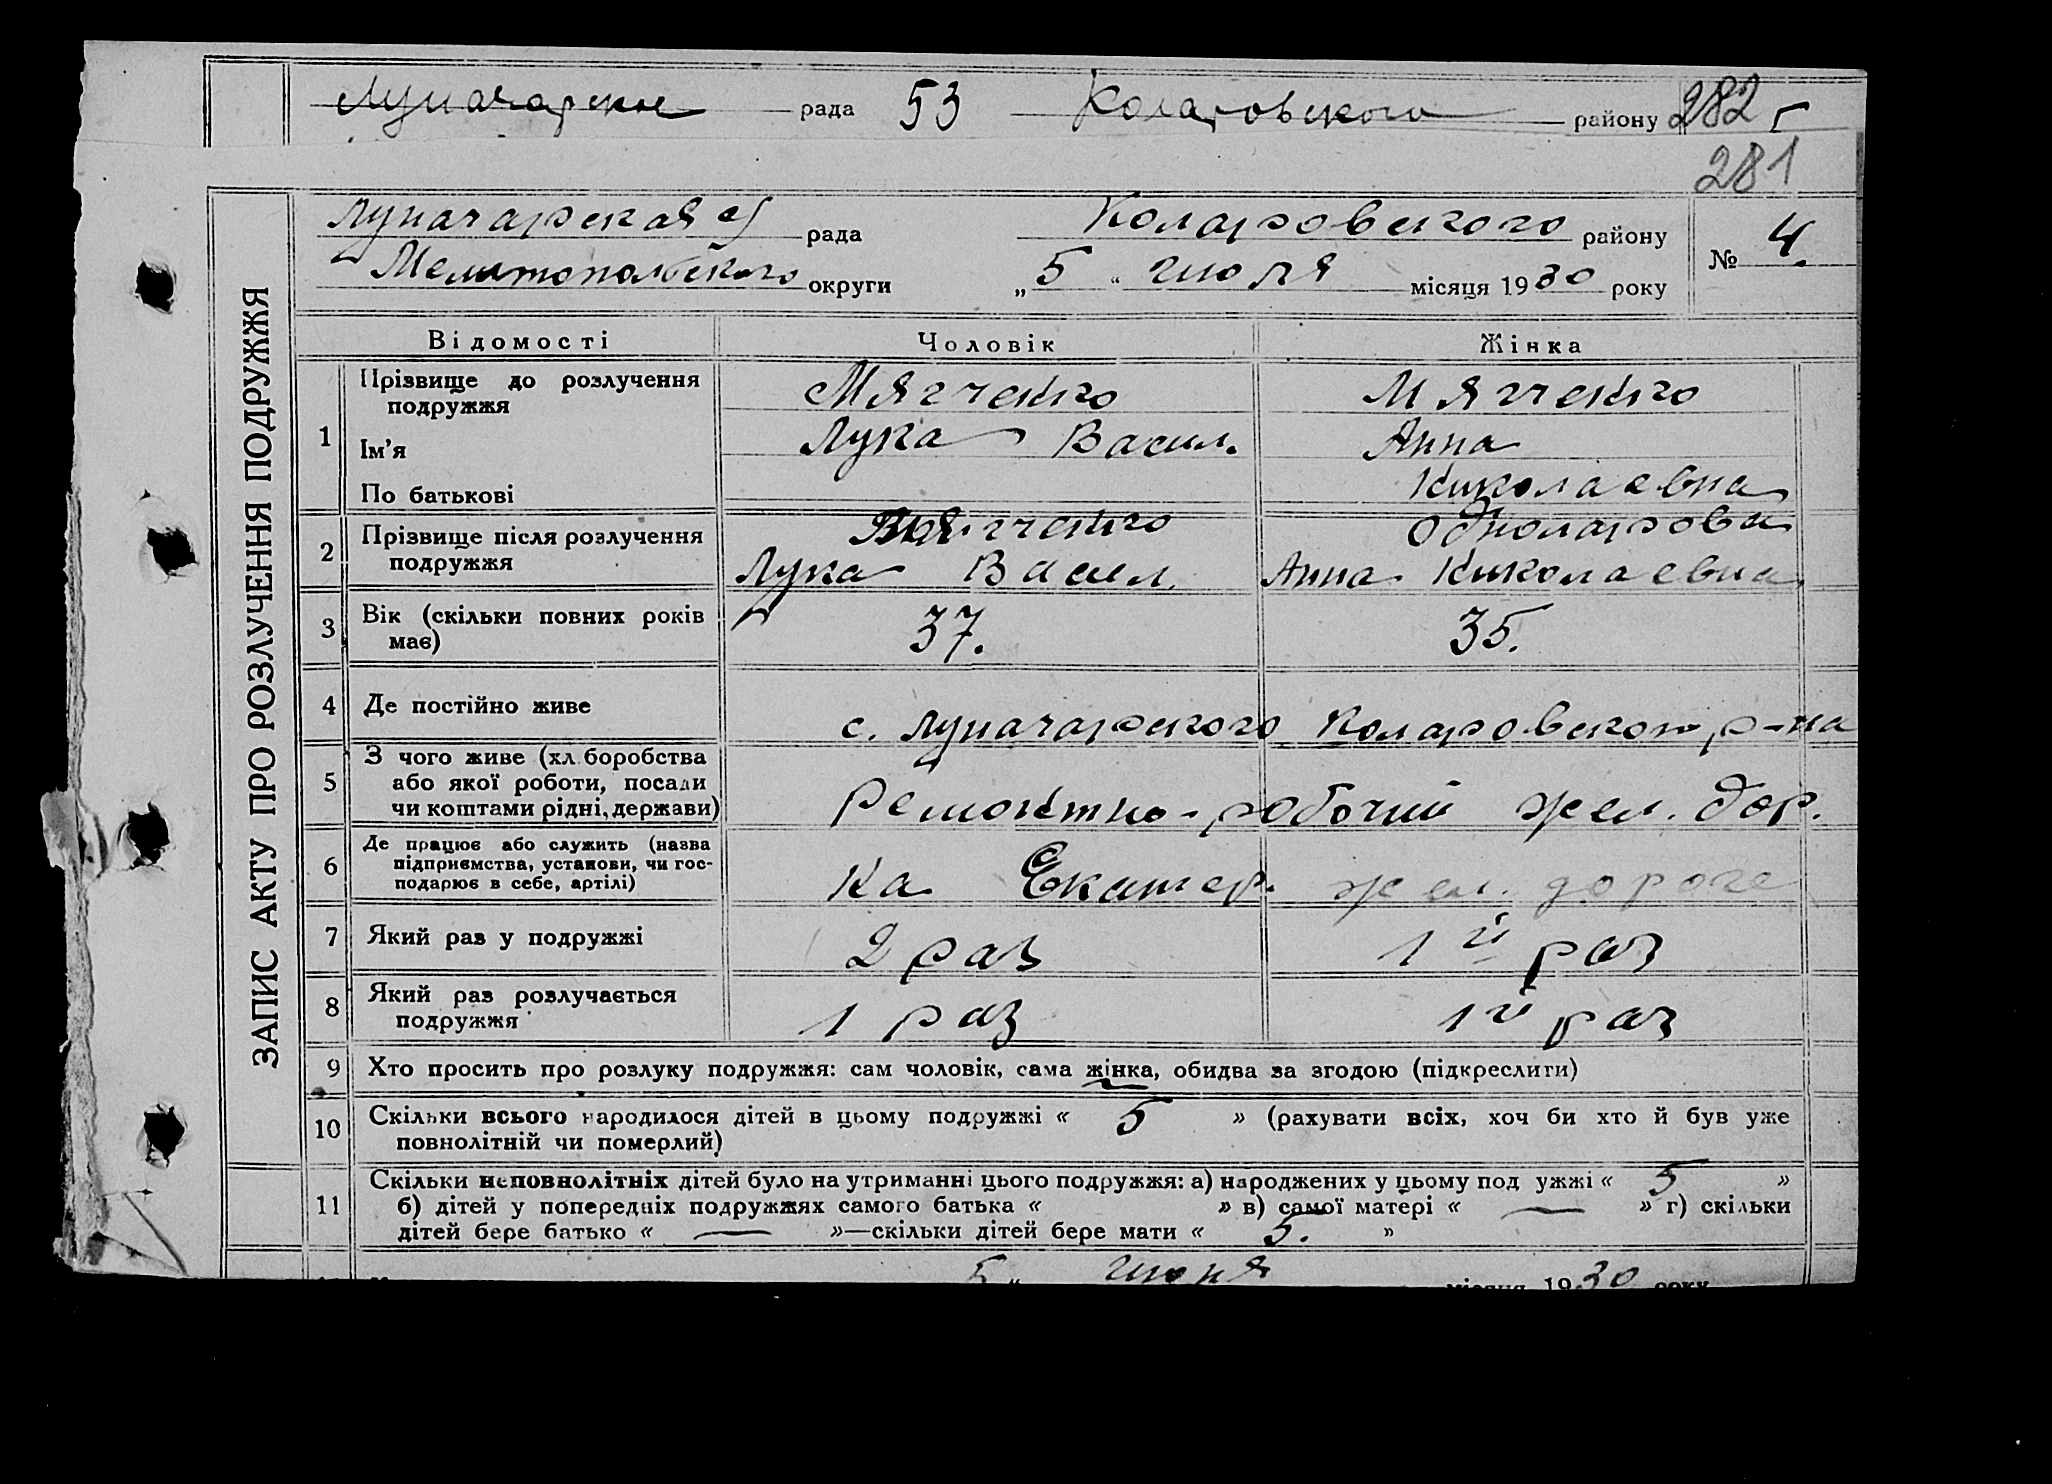 Луначарская рада 53 Коларовского району 282
281
Луначарская с/ рада Коларовского району № 4.
Мелитопольского округи „5“ июля місяця 1930 року
ЗАПИС АКТУ ПРО РОЗЛУЧЕННЯ ПОДРУЖЖЯ
Відомості Чоловік Жінка
1 Прізвище до розлучення Мягченко Мягченко
подружжя
Ім'я Лука Васил. Анна
По батькові Николаевна
2 Прізвище після розлучення Мягченко Однолирова
подружжя Лука Васил. Анна Николаевна
3 Вік (скільки повних років 37. 35.
має)
4 Де постійно живе с. Луначарского Коларовского р-на
5 З чого живе (хл.боробства
або якої роботи, посади Ремонтно-рабочий жел. дор.
чи коштами рідні, держави)
6 Де працює або служить (назва
підприємства, установи, чи гос- На Екатер. жел. дороге
подарює в себе, артілі)
7 Який раз у подружжі 2 раз 1й раз
8 Який раз розлучається 1 раз 1й раз
подружжя
9 Хто просить про розлуку подружжя: сам чоловік, сама жінка, обидва за згодою (підкреслити)
10 Скільки всього народилося дітей в цьому подружжі « 5 » (рахувати всіх, хоч би хто й був уже
повнолітній чи померлий)
11 Скільки неповнолітніх дітей було на утриманні цього подружжя: а) народжених у цьому под ужжі « 5 »
б) дітей у попередніх подружжях самого батька « » в) самої матері « — » г) скільки
дітей бере батько « — »—скільки дітей бере мати « 5. »
5 “ июля місяця 1930 року